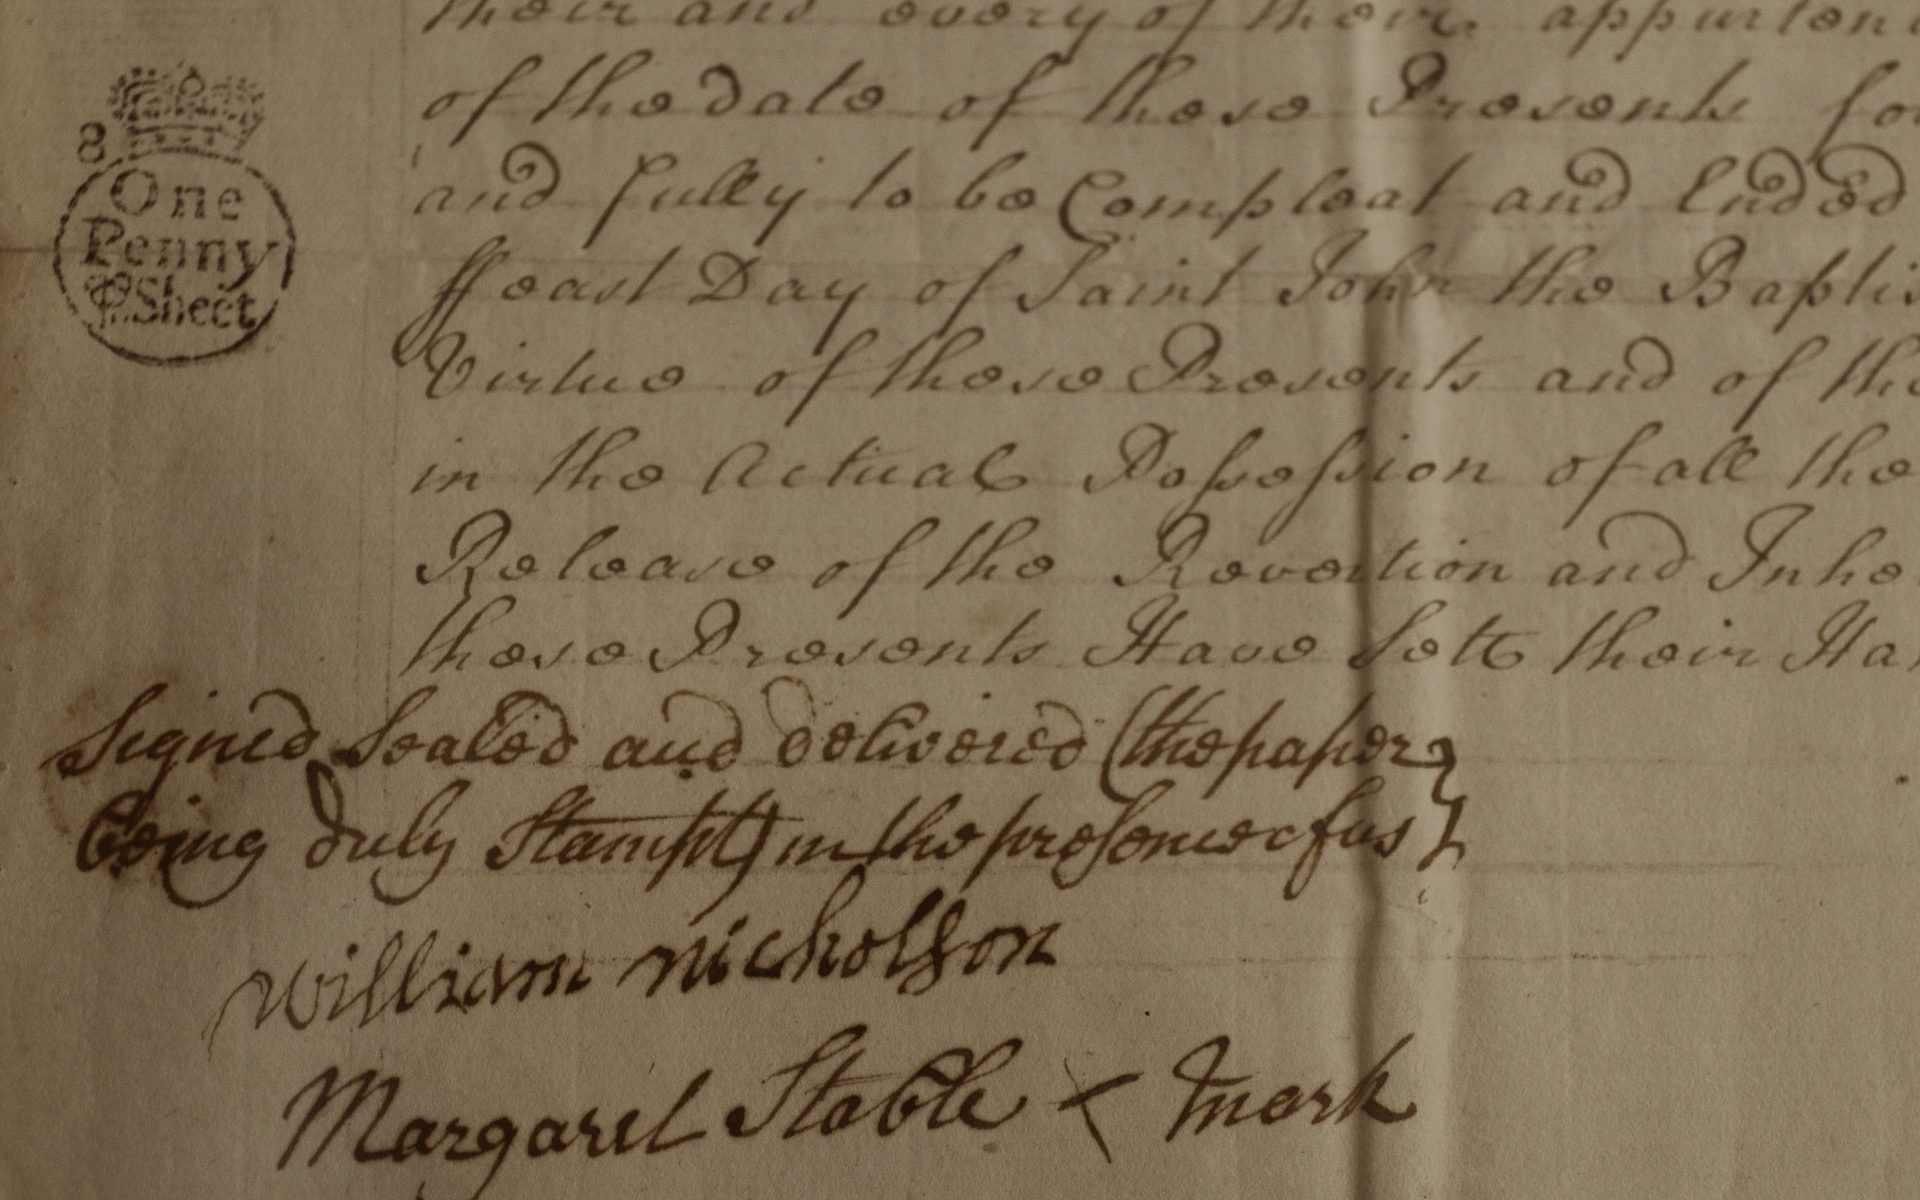 8
One
Penny
P Sheet
their and every of their appurten
of the date of these Presents fo
and fully to be Compleat and Ended
ffeast Day of Saint John the Baptis
Virtue of these Presents and of the
in the Actual Possession of all the
Release of the Revertion and Inhe
these Presents Have Sett their Ha
Signed Sealed and delivered (the paper
being duly Stampt) in the presence of us
William Nicholson
Margaret Stable X mark